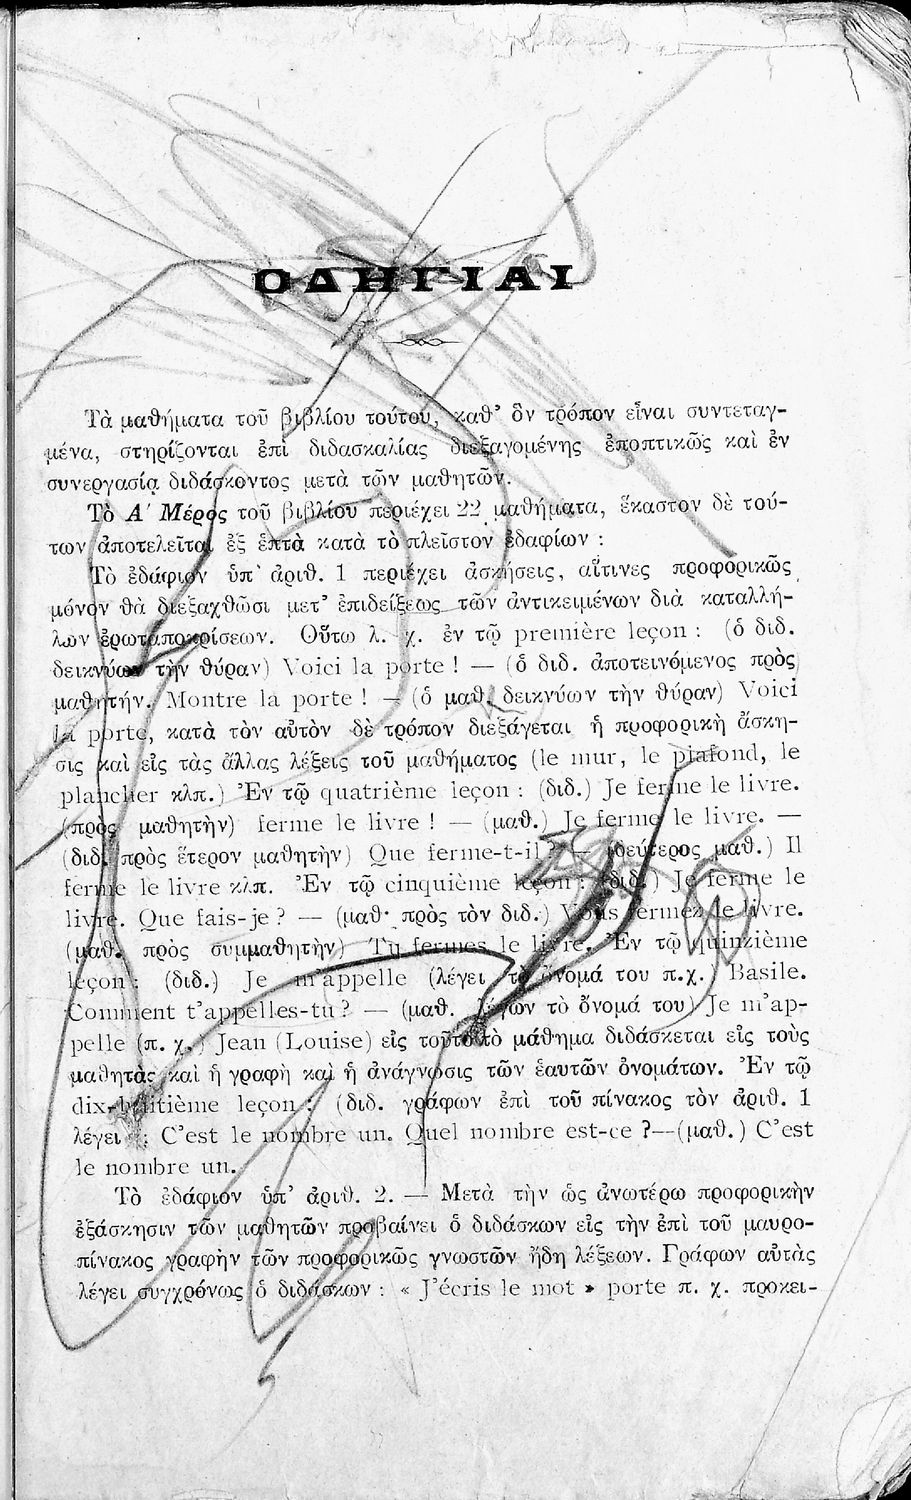 ΟΔΗΓΙΑΙ
Τὰ μαθήματα τοῦ βιβλίου τούτου, καθ’ ὃν τρόπον εἶναι συντεταγ-
μένα, στηρίζονται ἐπὶ διδασκαλίας διεξαγομένης ἐποπτικῶς καὶ ἐν
συνεργασίᾳ διδάσκοντος μετὰ τῶν μαθητῶν.
Τὸ Α΄ Μέρος τοῦ βιβλίου περιέχει 22 μαθήματα, ἕκαστον δὲ τού-
των ἀποτελεῖται ἐξ ἑπτὰ κατὰ τὸ πλεῖστον ἐδαφίων :
Τὸ ἐδάφιον ὑπ’ ἀριθ. 1 περιέχει ἀσκήσεις, αἵτινες προφορικῶς
μόνον θὰ διεξαχθῶσι μετ’ ἐπιδείξεως τῶν ἀντικειμένων διὰ καταλλή-
λων ἐρωταποκρίσεων. Οὕτω λ. χ. ἐν τῷ première leçon : (ὁ διδ.
δεικνύων τὴν θύραν) Voici la porte ! — (ὁ διδ. ἀποτεινόμενος πρὸς
μαθητήν. Montre la porte ! — (ὁ μαθ. δεικνύων τὴν θύραν) Voici
la porte, κατὰ τὸν αὐτὸν δὲ τρόπον διεξάγεται ἡ προφορικὴ ἄσκη-
σις καὶ εἰς τὰς ἄλλας λέξεις τοῦ μαθήματος (le mur, le plafond, le
plancher κλπ.) Ἐν τῷ quatrième leçon : (διδ.) Je ferme le livre.
(πρὸς μαθητὴν) ferme le livre ! — (μαθ.) Je ferme le livre. —
(διδ. πρὸς ἕτερον μαθητὴν) Que ferme-t-il ? — (δεύτερος μαθ.) Il
ferme le livre κλπ. Ἐν τῷ cinquième leçon : (διδ.) Je ferme le
livre. Que fais-je ? — (μαθ· πρὸς τὸν διδ.) Vous fermez le livre.
(μαθ. πρὸς συμμαθητὴν) Tu fermes le livre. Ἐν τῷ quinzième
leçon : (διδ.) Je m’appelle (λέγει τὸ ὄνομά του π.χ.) Basile.
Comment t’appelles-tu ? — (μαθ. λέγων τὸ ὄνομά του) Je m’ap-
pelle (π. χ.) Jean (Louise) εἰς τοῦτο τὸ μάθημα διδάσκεται εἰς τοὺς
μαθητὰς καὶ ἡ γραφὴ καὶ ἡ ἀνάγνωσις τῶν ἑαυτῶν ὀνομάτων. Ἐν τῷ
dix-huitième leçon : (διδ. γράφων ἐπὶ τοῦ πίνακος τὸν ἀριθ. 1
λέγει : C’est le nombre un. Quel nombre est-ce ?—(μαθ.) C’est
le nombre un.
Τὸ ἐδάφιον ὑπ’ ἀριθ. 2. — Μετὰ τὴν ὡς ἀνωτέρω προφορικὴν
ἐξάσκησιν τῶν μαθητῶν προβαίνει ὁ διδάσκων εἰς τὴν ἐπὶ τοῦ μαυρο-
πίνακος γραφὴν τῶν προφορικῶς γνωστῶν ἤδη λέξεων. Γράφων αὐτὰς
λέγει συγχρόνως ὁ διδάσκων : « J’écris le mot » porte π. χ. προκει-